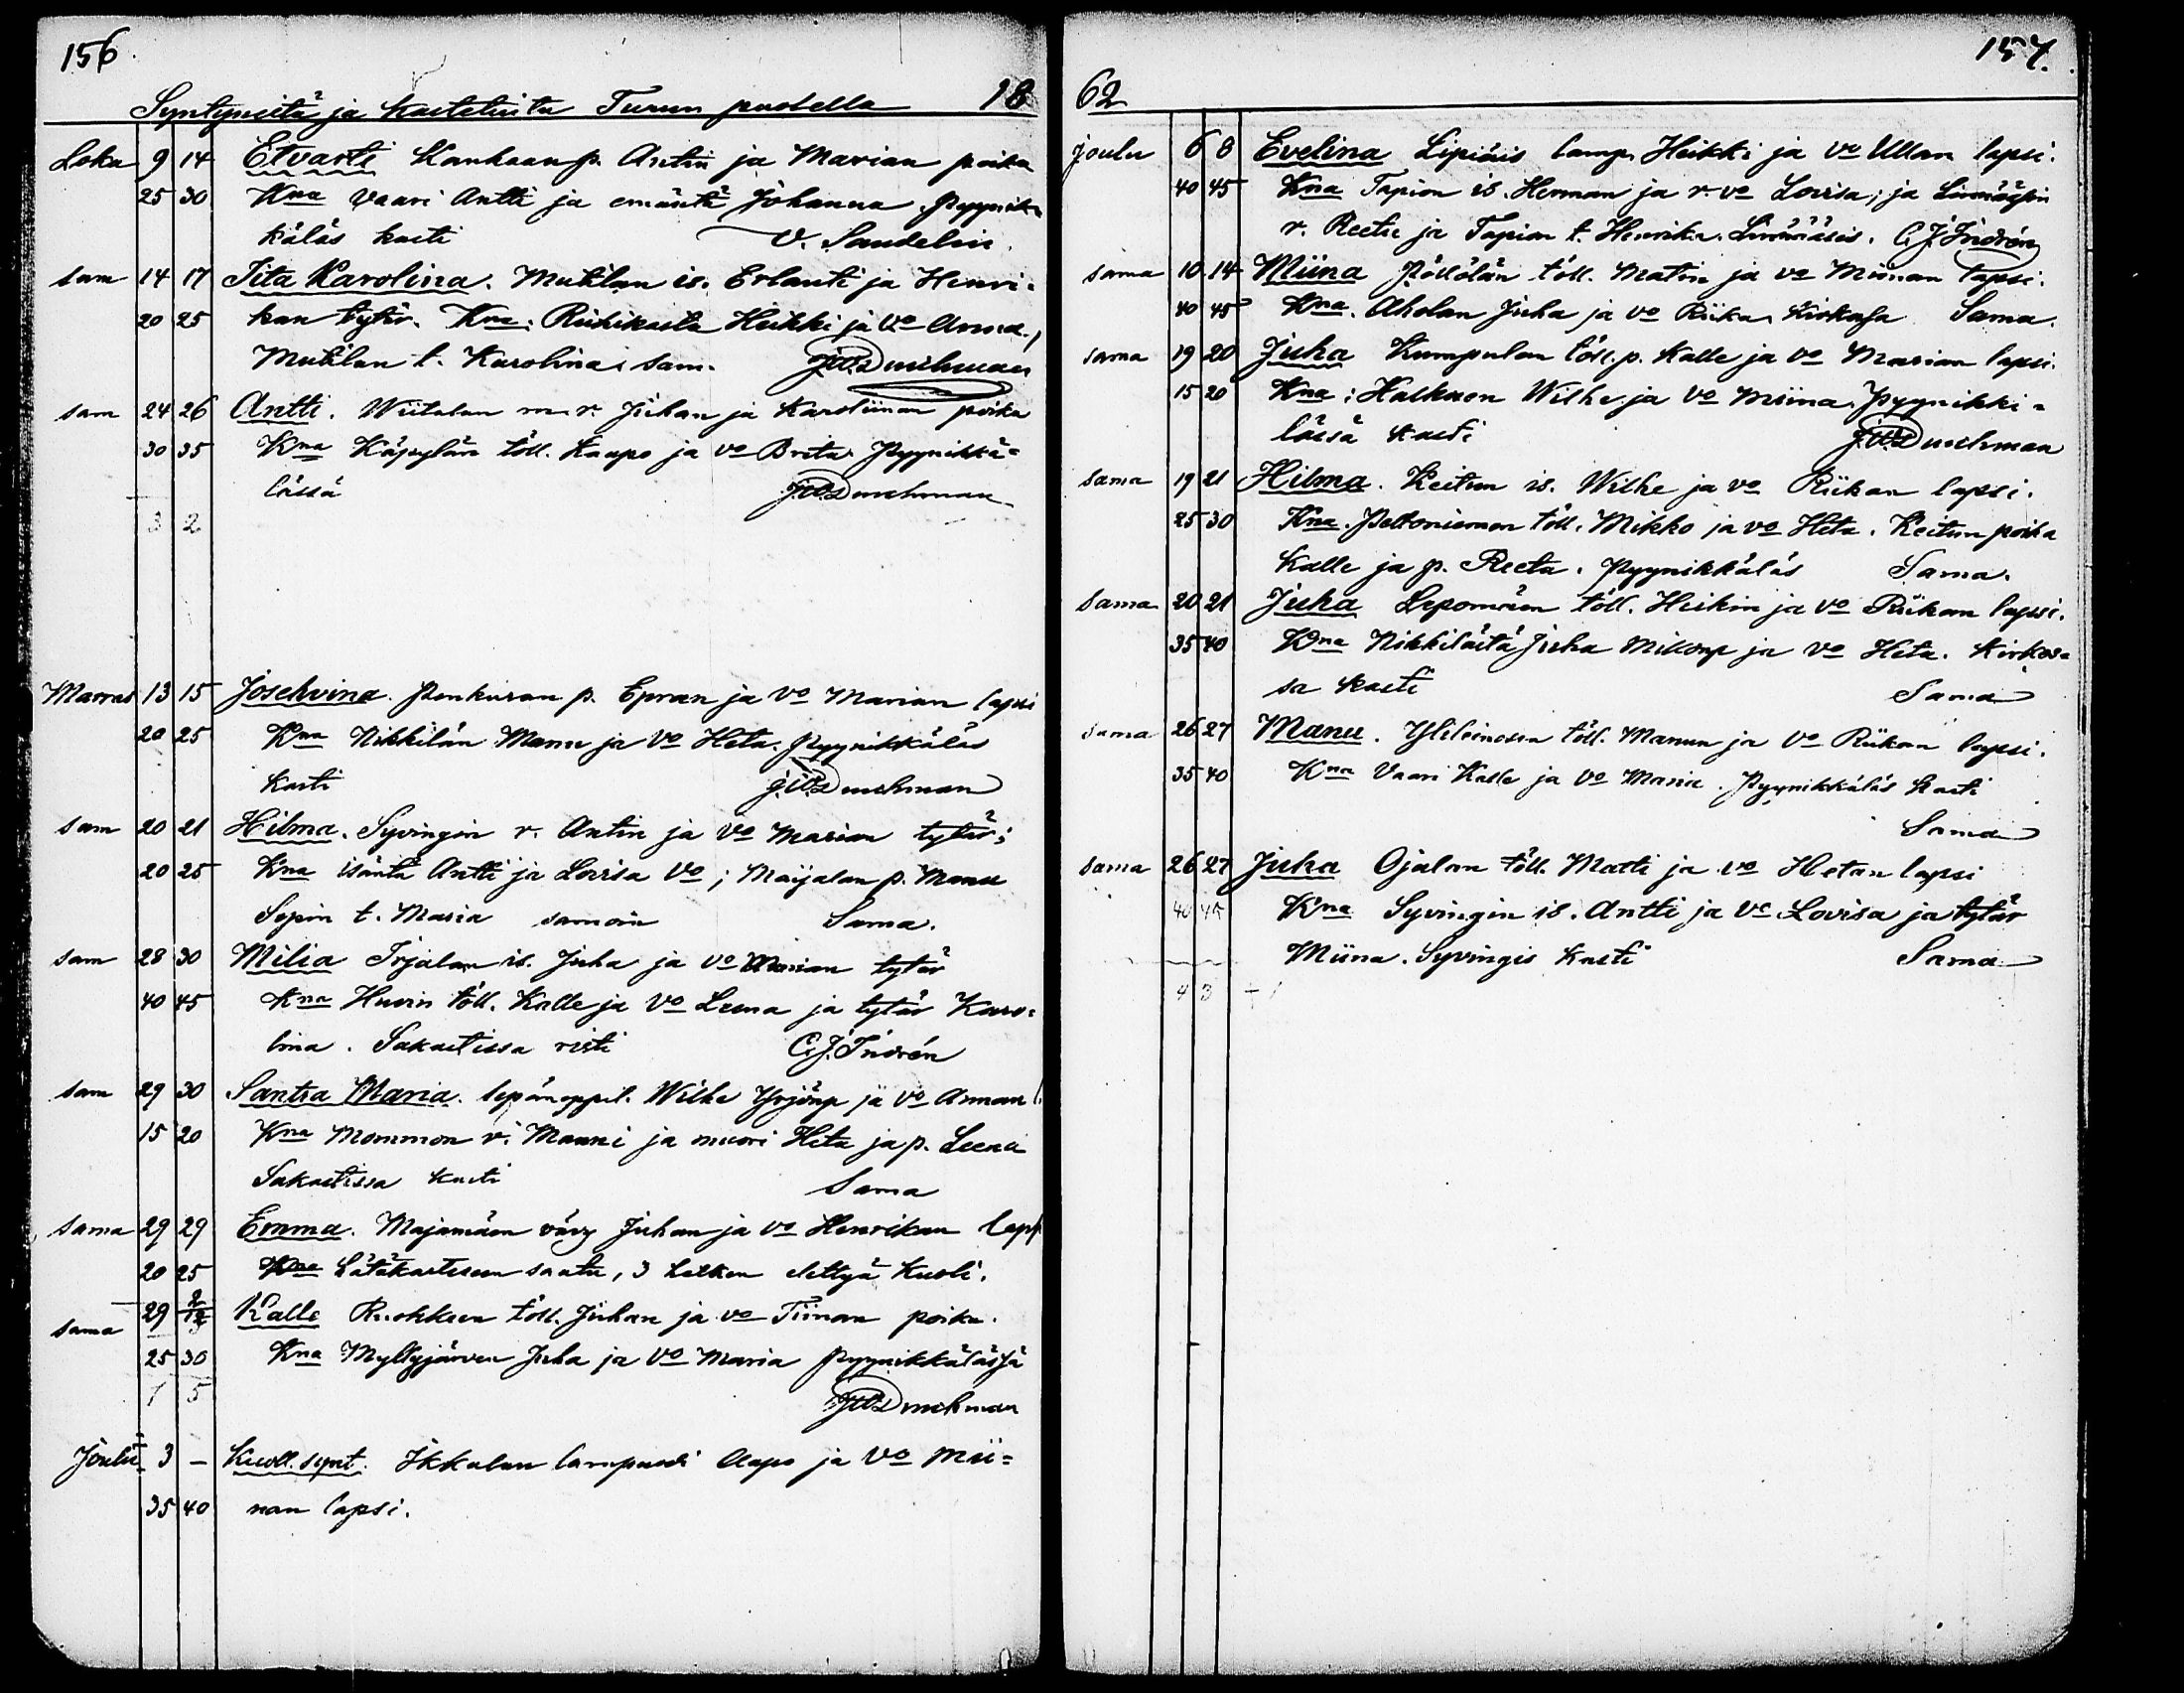 156
Syntyneitä ja kastetuita Turun puolella 18
Loka 9 14 Etvarti Kankaanp. Antin ja Marian poika
25 30 Kna Vaari Antti ja emäntä Johanna. Pyynik-
käläs kasti V. Sandelin.
sam 14 17 Iita Karolina. Mutilan is. Erlanti ja Henri-
20 25 kan tytär. Kna: Riihikasta Heikki ja Vo Anna.,
Mutilan t. Karolina; sam. J.W. Durchman
sam 24 26 Antti. Wiitalan m. r. Juhan ja Karoliinan poika
30 35 Kna Käpylän töll. Kaapo ja vo Brita. Pyynikkä-
lässä J.W. Durchman
3 2
Marras 13 15 Josehvina. Penkuran p. Epran ja Vo Marian lapsi
20 25 Kna Nikkilän Manu ja Vo Heta. Pyynikkäläs
kasti J.W. Durchman
sam 20 21 Hilma. Syvingin r. Antin ja Vo Marian tytär;
20 25 Kna isäntä Antti ja Lovisa Vo; Maijalan p. Manu
Sepin t. Maria samoin Sama.
sam 28 30 Milia Irjalan is. Juha ja Vo Marian tytär
40 45 Kna Huvin töll. Kalle ja Vo Leena ja tytär Karo-
lina. Sakastissa risti C.J. Indrén
sam 29 30 Santra Maria. sepänoppil. Wilhe Yrjönp ja Vo Annan l.
15 20 Kna Mommon r. Manni ja muori Heta ja p. Leena
Sakastissa kasti Sama
Sama 29 29 Emma. Majamäen vävy Juhan ja vo Henrikan laps
20 25 Kna hätäkasteen saatu, 3 hetken elettyä kuoli.
sama 29 2/12 Kalle Ruokkeen töll. Juhan ja vo Tiinan poika.
25 30 Kna Myllyjärven Juha ja Vo Maria Pyynikkälässä
1 5
J.W. Durchman
Joulu 3 – Kuoll. synt. Ikkalan lampuodi Aapo ja Vo Mii-
35 40 nan lapsi.
157.
62
Joulu 6 8 Evelina Lipiäis lamp. Heikki ja Vo Ullan lapsi.
40 45 Kna Tapion is. Herman ja r. vo Lovisa; ja
r. Reetu ja Tapion t. Henrika. C.J. Indrén
sama 10 14 Miina Pöllölän töll. Matin ja vo Miinan lapsi.
40 45 Kna. Aholan Juha ja vo Riika. Kirkosa Sama.
sama 19 20 Juha Kumpulan töll. p. Kalle ja vo Marian lapsi.
15 20 Kna: Halkaon Wilhe ja vo Miina. Pyynikki-
lässä kasti J.W. Durchman
sama 19 21 Hilma. Keitun is. Wilhe ja vo Riikan lapsi.
25 30 Kna. Peltoniemen töll. Mikko ja vo Heta. Keitun poika
Kalle ja p. Reeta. Pyynikkäläs Sama.
sama 20 21 Juha Lepomäen töll. Heikin ja vo Riikan lapsi.
35 40 Kna Nikkilästä Juha Mikonp ja vo Heta. Kirkos-
sa kasti Sama
sama 26 27 Manu. Ylileinosen töll. Manun ja Vo Riikan lapsi.
35 40 Kna Vaari Kalle ja Vo Maria. Pyynikkäläs kasti
Sama
sama 26 27 Juha Ojalan töll. Matti ja vo Hetan lapsi
40 45 Kna Syvingin is. Antti ja Vo Lovisa ja tytär
Miina. Syvingis kasti Sama
4 3 + 1